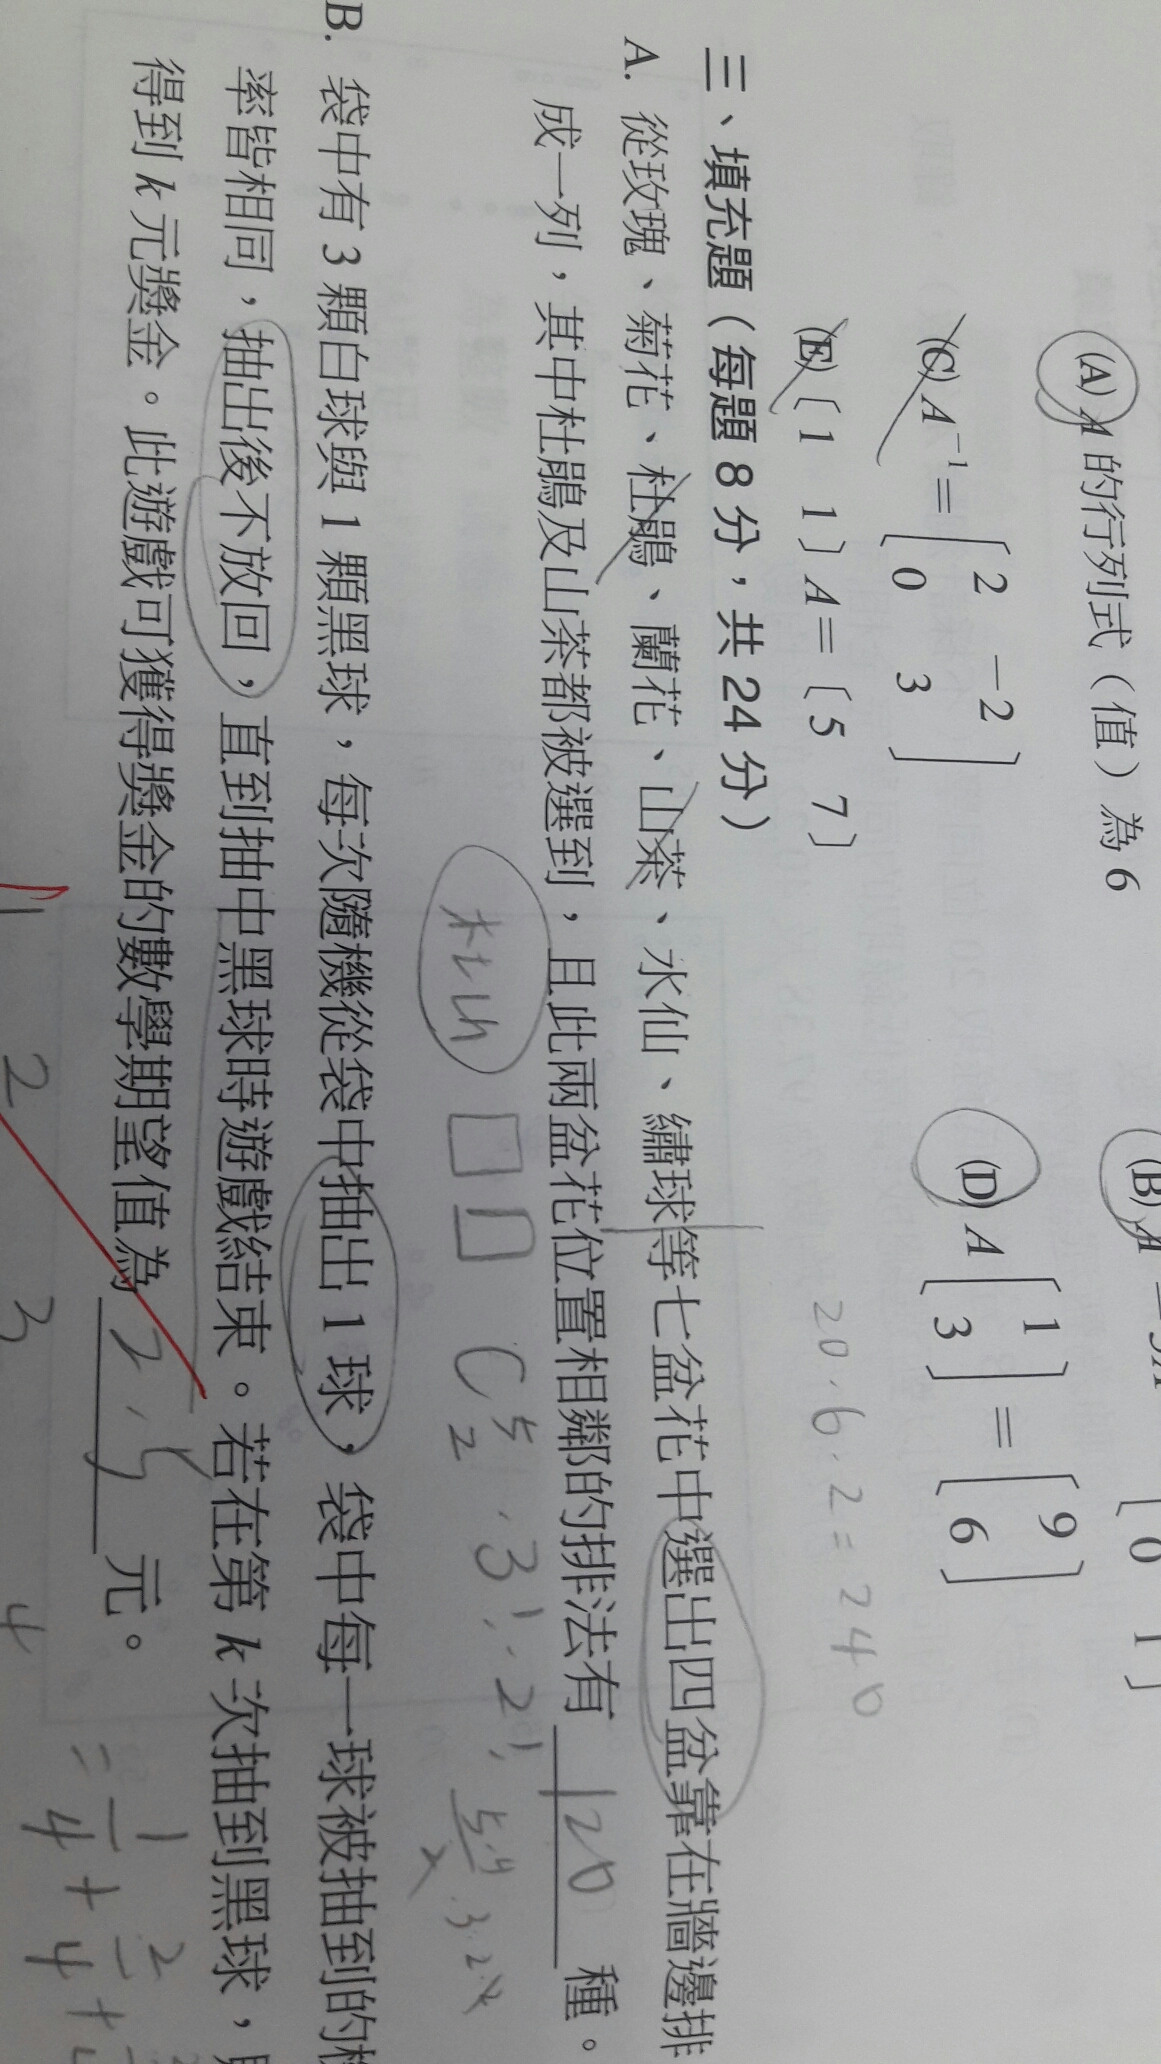 (A) A 的行列式(值)為 6
(B) A
(C) A⁻¹ = [2 −2; 0 3]
(D) A [1; 3] = [9; 6]
(E) [1 1] A = [5 7]
20·6·2 = 240
三、填充題(每題 8 分,共 24 分)
A. 從玫瑰、菊花、杜鵑、蘭花、山茶、水仙、繡球等七盆花中選出四盆靠在牆邊排
成一列,其中杜鵑及山茶都被選到,且此兩盆花位置相鄰的排法有 120 種。
杜山 □ □ C⁵₂ · 3! · 2!
B. 袋中有 3 顆白球與 1 顆黑球,每次隨機從袋中抽出 1 球,袋中每一球被抽到的
率皆相同,抽出後不放回,直到抽中黑球時遊戲結束。若在第 k 次抽到黑球,
得到 k 元獎金。此遊戲可獲得獎金的數學期望值為 2.5 元。
1 2 3 4
= 1/4 + 2/4 +